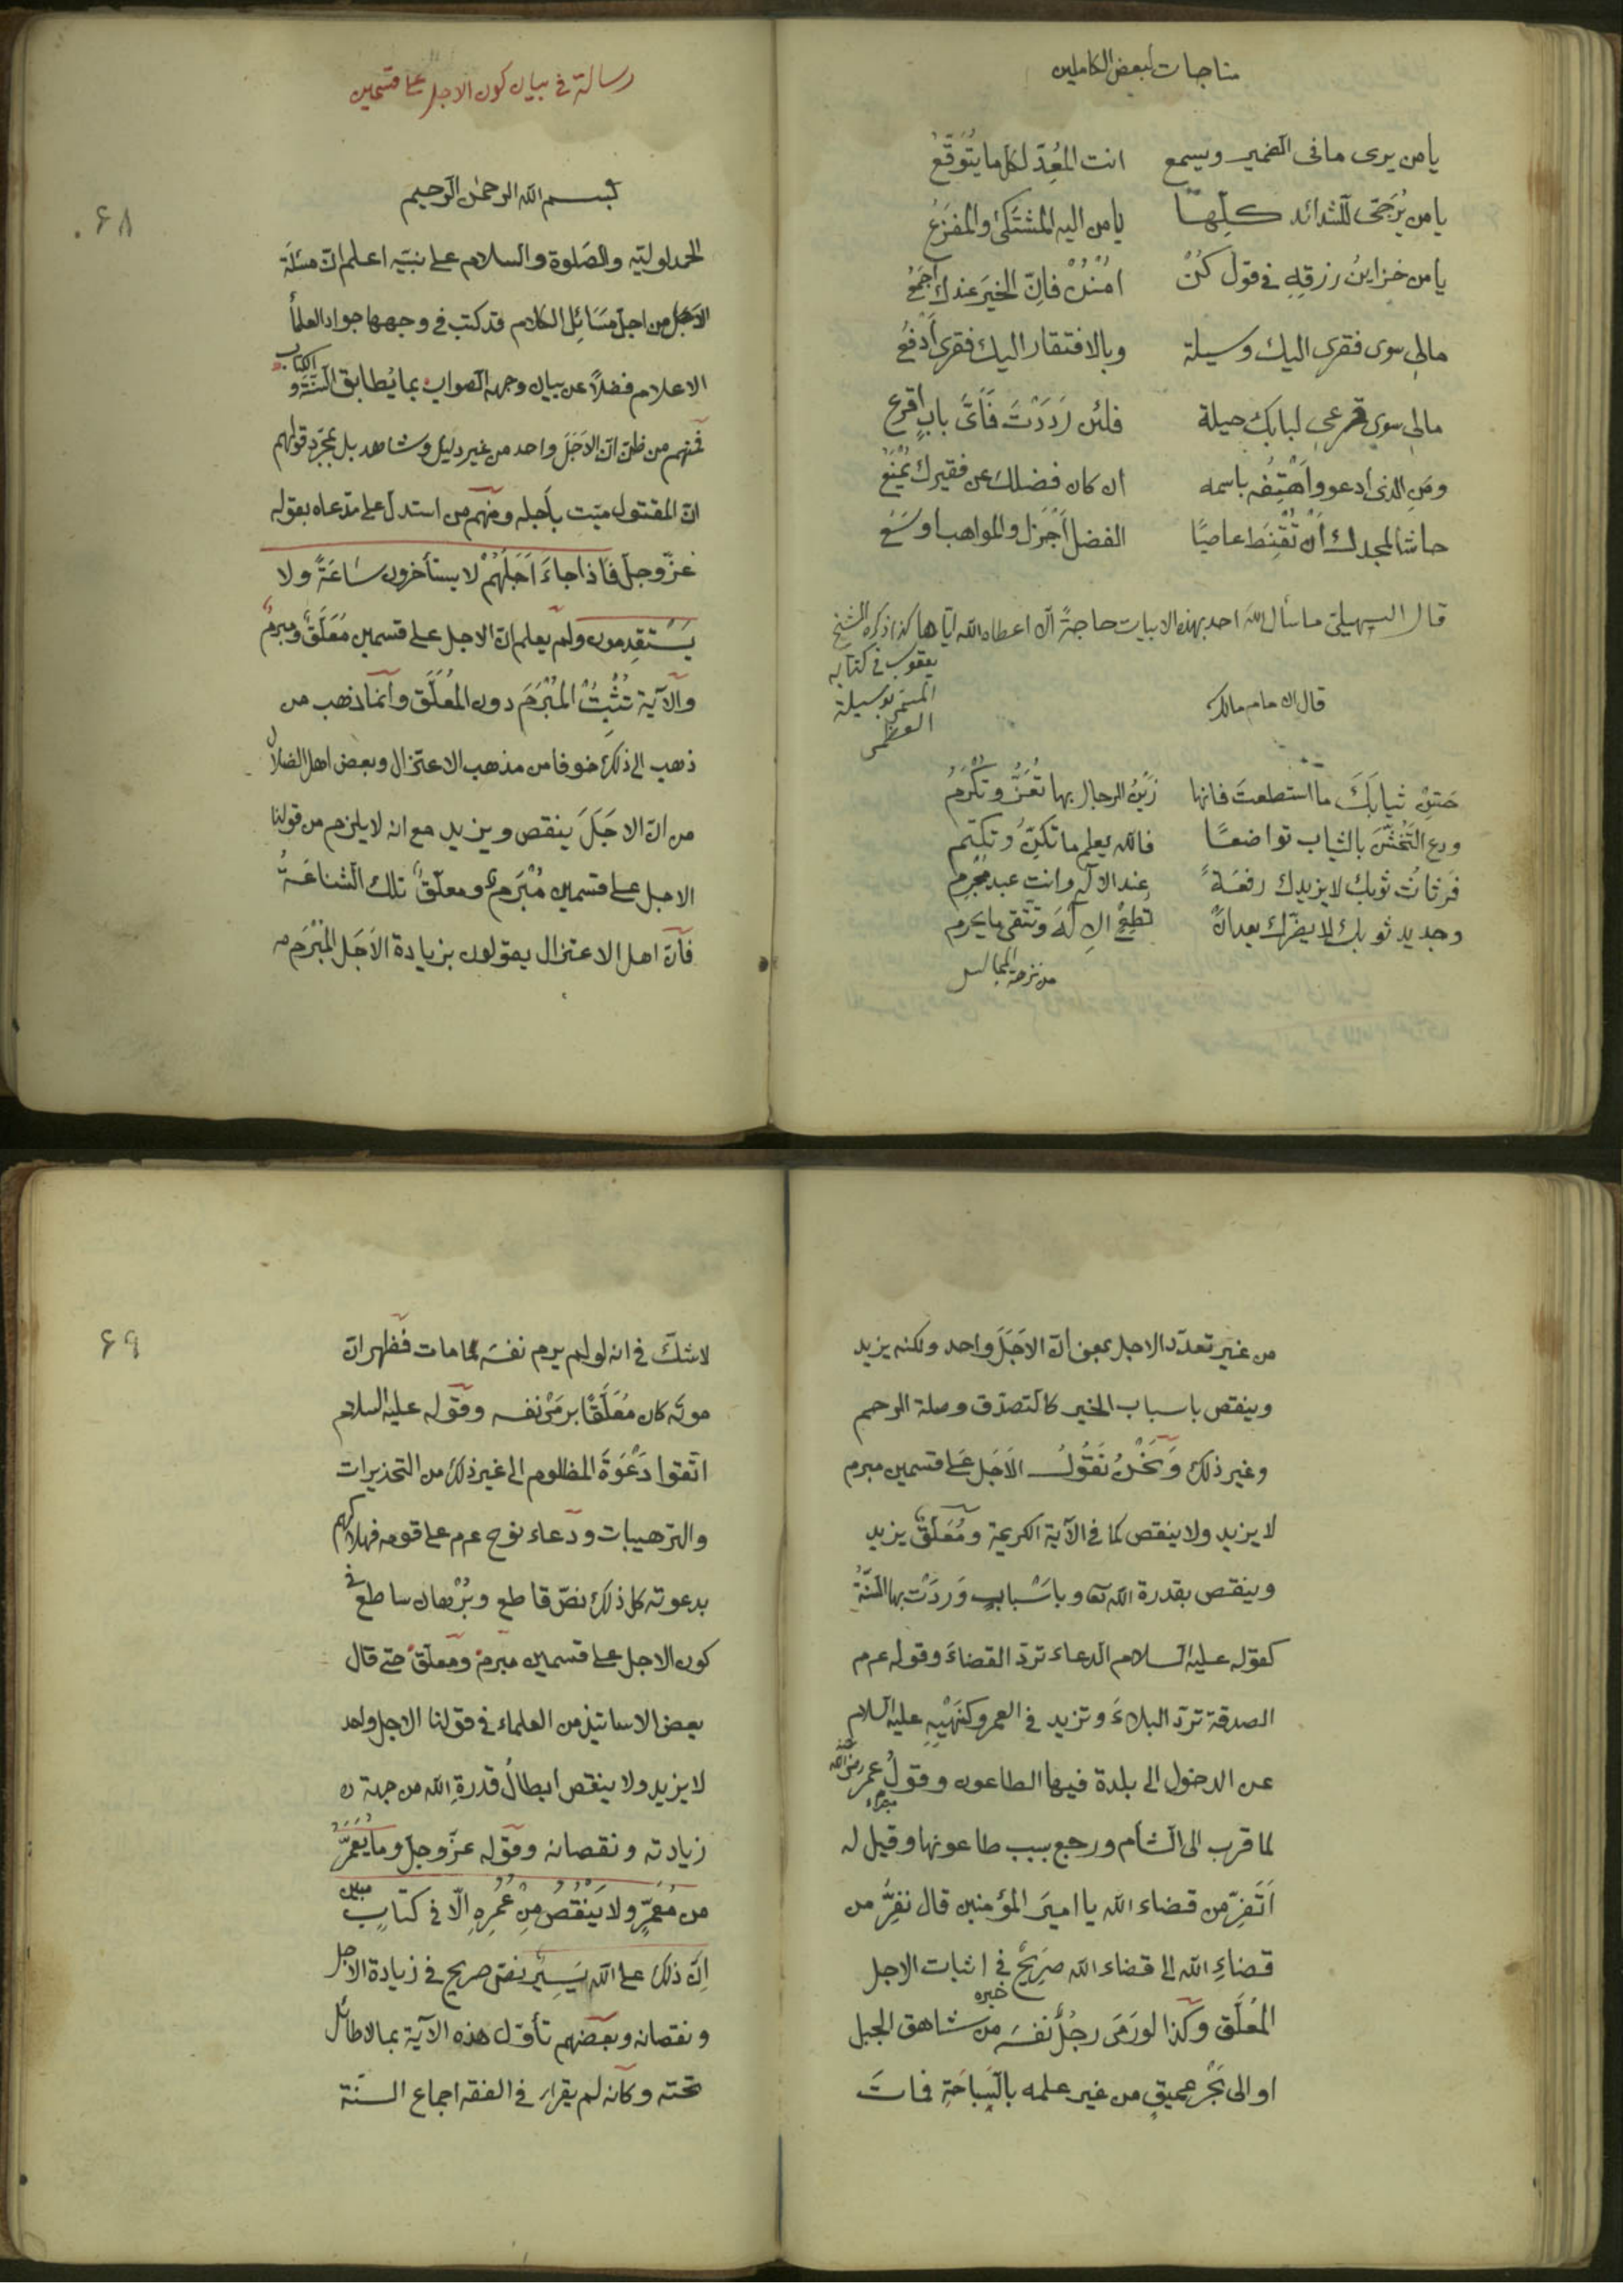 مناجات لبعض الكاملين
يا من يرى ما في الضمير ويسمع انت المُعِدّ لكل ما يُتَوَقَّعُ
يا من يُرَجّى للشدائد كلِّها يا من اليه المُشتَكى والمفزَعُ
يا من خزاينُ رزقِهِ في قول كُنْ اُمْنُنْ فاِنّ الخيرَ عندك اَجمَعُ
مالي سوى فقري اليك وسيلة وبالافتقار اليك فقري اَدْفَعُ
مالي سوى قرعي لبابك حيلة فلئن رَدَدْتَ فَاَىَّ بابٍ اقرع
ومَنِ الذي ادعو واَهْتِفُ باسمه ان كان فضلك عن فقيرك يُمْنَعُ
حاشا لمجدك اَنْ تُقْنِطَ عاصيًا الفضل اَجْزَل والمواهب اوسَعُ
قال السهيلي ما سأل اللهَ احد بهذه الابيات حاجةً الّا اعطاه الله ايّاها كذا ذكره الشيخ
يعقوب في كتابه
المسمّى بوسيلة
العظمى
قال الامام مالك
حَسِّنْ ثيابَكَ ما استطعتَ فانها زَيْنُ الرجال بها تُعَزُّ وتُكْرَمُ
ودع التَّخَشُّنَ بالثياب تواضعًا فالله يعلم ما تُكِنُّ وتكتم
فَرَثاثُ ثوبك لا يزيدك رفعَةً عند الاله وانت عبد مجرم
وجديد ثوبك لا يضرّك بعد انْ تُطِعِ الاِلٰهَ وتتّقي ما يحرم
من نزهة المجالس
رسالة في بيان كون الاجل على قسمين
٦٨
بسم الله الرحمٰن الرحيم
الحمد لوليّه والصّلوة والسلام على نبيّه اعلم انّ مسئلَةَ
الاَجَل من اجلّ مسَائِل الكلام قد كتب في وجهها جواد العلمأ
الاعلام فضلًا عن بيان وجه الصواب بما يُطابق السّنّةَ و الكتاب
فمنهم من ظنّ انّ الاَجَلَ واحد من غير دليل وشاهد بل بمجرّد قولهم
انّ المقتول ميّت بأجله ومنهم من استدلّ على مدّعاه بقوله
عزّ وجلّ فاذا جاءَ اَجَلُهُمْ لا يستأخرون سَاعَةً ولا
يَسْتَقدِمون ولم يعلم انّ الاجل على قسمين مُعَلَّقٌ ومبرمٌ
والآية تُثْبِتُ المُبْرَمَ دون المُعَلَّق وانّما ذهب من
ذهب الى ذلك خوفا من مذهب الاعتزال وبعض اهل الضلال
من انّ الاجَلَ ينقص ويزيد مع انه لا يلزم من قولنا
الاجل على قسمين مُبْرَم ومعلّق تلك الشناعَةُ
فانّ اهل الاعتزال يقولون بزيادة الاَجَل المُبْرَم
من غير تعدّد الاجل بمعنى انّ الاَجَلَ واحد ولكنه يزيد
وينقص باسباب الخير كالتصدّق وصلة الرحم
وغير ذلك وَنَحْنُ نَقُولُ الاَجَل على قسمين مبرم
لا يزيد ولا ينقص كما في الآية الكريمة ومُعَلَّق يزيد
وينقص بقدرة الله تعا وباسْبابٍ وَردَتْ بها السّنّةُ
كقوله عليه السلام الدعاء تردّ القضاءَ وقوله عم
الصدقة تردّ البلاءَ وتزيد في العمر وكنَهْيِهِ عليه السلام
عن الدخول الى بلدة فيها الطاعون وقولُ عمر رضي الله عنه
لما قرب الى الشأم ورجع بسبب طاعونها وقيل له
اَتَفِرّ من قضاء الله يا اميرَ المؤمنين قال نفِرُّ من
قضاءِ الله الى قضاء الله صَرِيحٌ في اثبات الاجل
المُعَلَّق وكذا لو رَمَى رجُلٌ نفسَه من شاهق الجبل
او الى بَحْرٍ عميقٍ من غير علمه بالسِّباحَةِ فماتَ
٦٩
لا شكّ في انه لو لم يرم نفسَه لما مات فظهر انّ
موتَه كان مُعَلَّقًا برَمْىِ نفسه وقوله عليه السلام
اتّقوا دَعْوَةَ المظلوم الى غير ذلك من التحذيرات
والترهيبات ودعاء نوح عم على قومه فهلاكهم
بدعوته كل ذلك نصّ قاطع وبُرْهان ساطع في
كون الاجل على قسمين مبرم ومعلّق حتى قال
بعض الاساتيذ من العلماء في قولنا الاجل واحد
لا يزيد ولا ينقص ابطالُ قدرةِ الله من جهة
زيادته ونقصانه وقوله عزّ وجلّ وما يُعَمَّرُ
من مُعَمَّرٍ ولا يَنْقُصُ مِنْ عُمُرِهِ اِلّا في كتابٍ مبين
اِنّ ذلك على الله يَسِيرٌ نصّ صريح في زيادة الاجل
ونقصانه وبعضهم تأوّل هذه الآية بما لا طائل
تحته وكانه لم يقرأ في الفقه اجماع السنّة